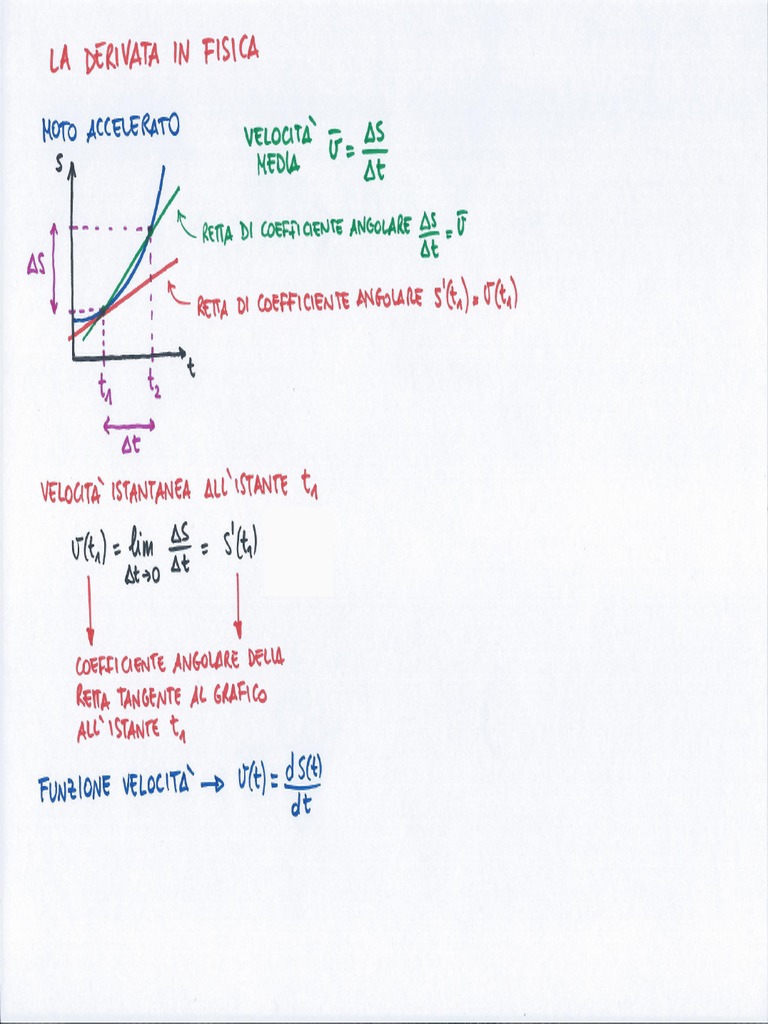 LA DERIVATA IN FISICA
MOTO ACCELERATO
VELOCITA' MEDIA v̄ = ΔS/Δt
S
RETTA DI COEFFICIENTE ANGOLARE ΔS/Δt = v̄
ΔS
RETTA DI COEFFICIENTE ANGOLARE S'(t₁) = v(t₁)
t
t₁ t₂
Δt
VELOCITA' ISTANTANEA ALL'ISTANTE t₁
v(t₁) = lim Δt→0 ΔS/Δt = S'(t₁)
COEFFICIENTE ANGOLARE DELLA
RETTA TANGENTE AL GRAFICO
ALL'ISTANTE t₁
FUNZIONE VELOCITA' → v(t) = dS(t)/dt